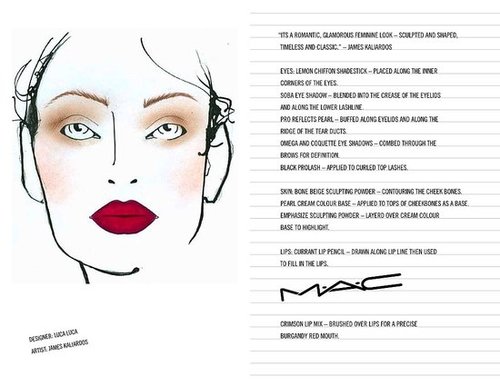 "ITS A ROMANTIC, GLAMOROUS FEMININE LOOK – SCULPTED AND SHAPED,
TIMELESS AND CLASSIC." – JAMES KALIARDOS
EYES: LEMON CHIFFON SHADESTICK – PLACED ALONG THE INNER
CORNERS OF THE EYES.
SOBA EYE SHADOW – BLENDED INTO THE CREASE OF THE EYELIDS
AND ALONG THE LOWER LASHLINE.
PRO REFLECTS PEARL – BUFFED ALONG EYELIDS AND ALONG THE
RIDGE OF THE TEAR DUCTS.
OMEGA AND COQUETTE EYE SHADOWS – COMBED THROUGH THE
BROWS FOR DEFINITION.
BLACK PROLASH – APPLIED TO CURLED TOP LASHES.
SKIN: BONE BEIGE SCULPTING POWDER – CONTOURING THE CHEEK BONES.
PEARL CREAM COLOUR BASE – APPLIED TO TOPS OF CHEEKBONES AS A BASE.
EMPHASIZE SCULPTING POWDER – LAYERD OVER CREAM COLOUR
BASE TO HIGHLIGHT.
LIPS: CURRANT LIP PENCIL – DRAWN ALONG LIP LINE THEN USED
TO FILL IN THE LIPS.
M·A·C
CRIMSON LIP MIX – BRUSHED OVER LIPS FOR A PRECISE
BURGANDY RED MOUTH.
DESIGNER: LUCA LUCA
ARTIST: JAMES KALIARDOS